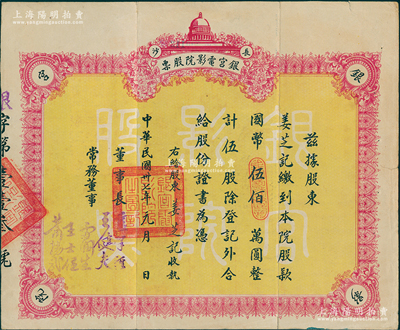 上海陽明拍賣
www.ymauction.com
長沙
銀宮電影院股票
銀
宮
股
票
銀宮
股票
茲據股東
姜芝記繳到本院股款
國幣伍佰萬圓整
計伍股除登記外合
給股份證書為憑
右給股東姜芝記收執
中華民國卅七年元月 日
董事長
常務董事
銀字第
號